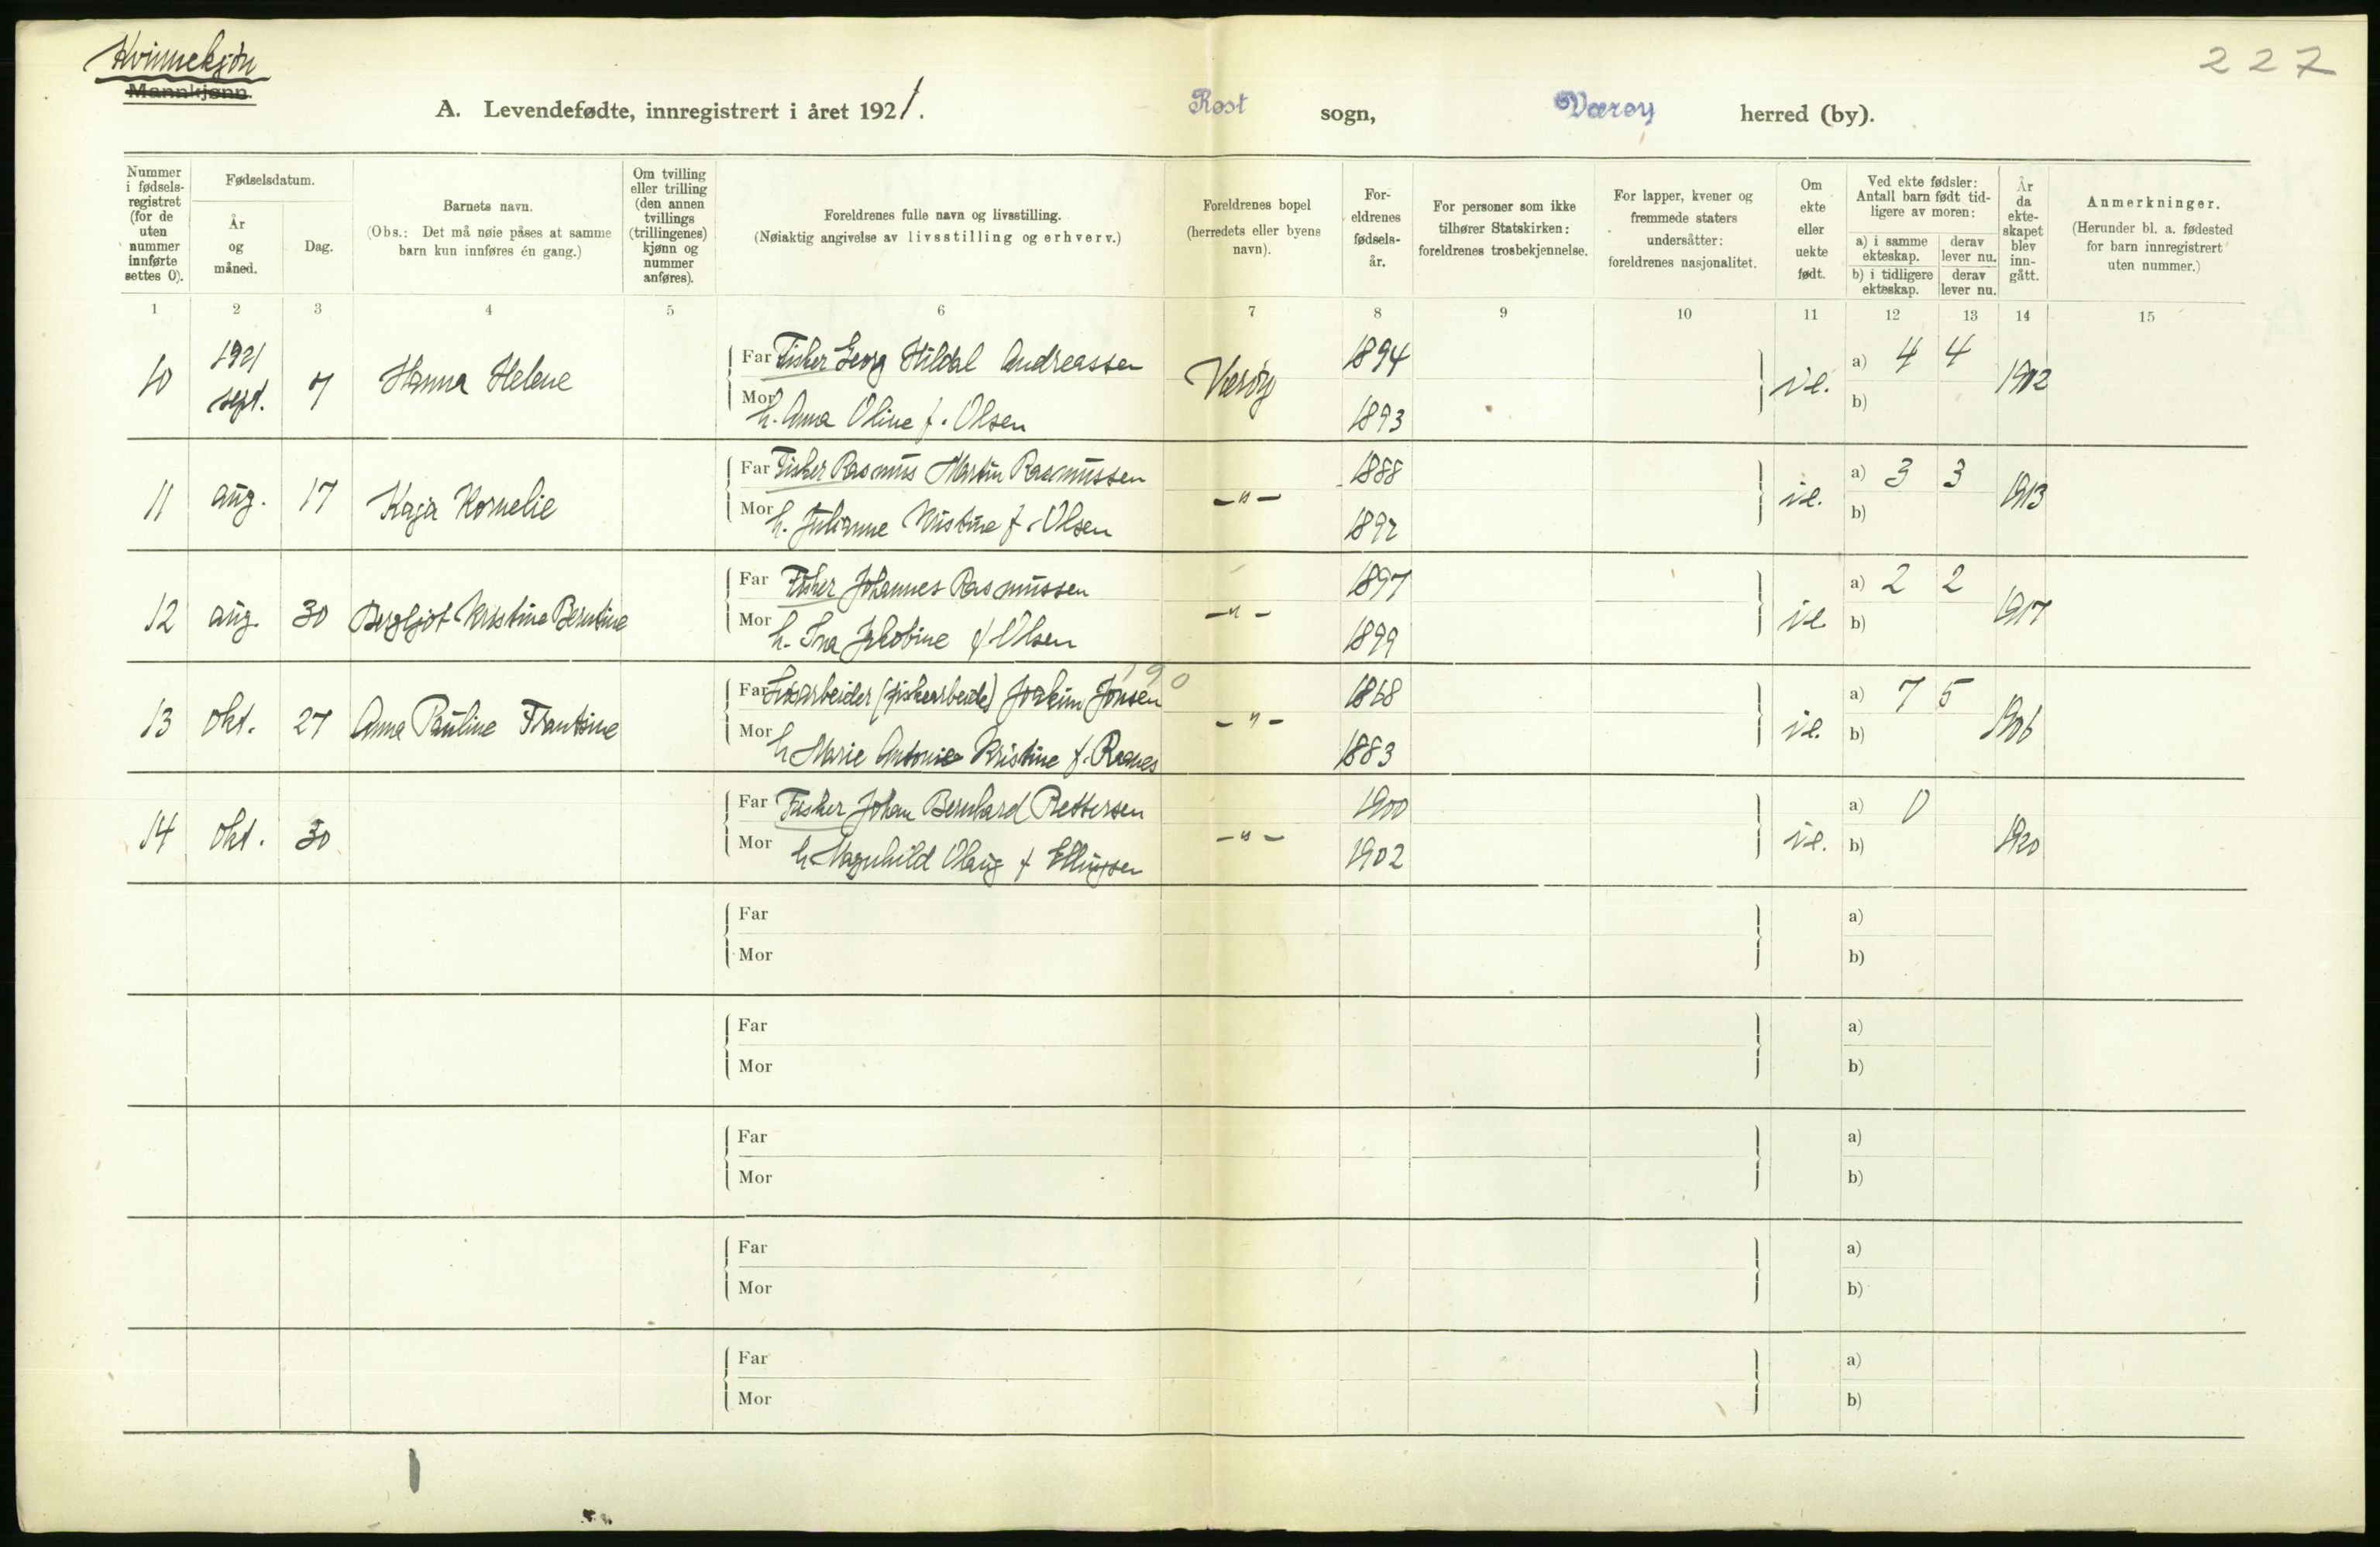 Kvinnekjøn
Mannkjønn.
227
A. Levendefødte, innregistrert i året 1921.
Røst sogn, Værøy herred (by).
Nummer i fødselsregistret (for de uten nummer innførte settes 0).
Fødselsdatum.
År og måned.
Dag.
Barnets navn.
(Obs.: Det må nøie påses at samme barn kun innføres én gang.)
Om tvilling eller trilling (den annen tvillings (trillingenes) kjønn og nummer anføres).
Foreldrenes fulle navn og livsstilling.
(Nøiaktig angivelse av livsstilling og erhverv.)
Foreldrenes bopel (herredets eller byens navn).
Foreldrenes fødselsår.
For personer som ikke tilhører Statskirken: foreldrenes trosbekjennelse.
For lapper, kvener og fremmede staters undersåtter: foreldrenes nasjonalitet.
Om ekte eller uekte født.
Ved ekte fødsler: Antall barn født tidligere av moren:
a) i samme ekteskap. derav lever nu.
b) i tidligere ekteskap. derav lever nu.
År da ekteskapet blev inngått.
Anmerkninger.
(Herunder bl. a. fødested for barn innregistrert uten nummer.)
1 2 3 4 5 6 7 8 9 10 11 12 13 14 15
10 1921 sept. 7 Hanna Helene
Far Fisker Georg Hildal Andreassen Værøy 1894 a) 4 4
Mor h. Anna Oline f. Olsen 1893 b) 1912
11 aug. 17 Kaja Kornelie
Far Fisker Rasmus Martin Rasmussen -"- 1888 a) 3 3
Mor h. Julianne Kristine f. Olsen 1892 b) 1913
12 aug. 30 Bergljot Kristine Berntine
Far Fisker Johannes Rasmussen -"- 1897 a) 2 2
Mor h. Ina Jakobine f. Olsen 1899 b) 1917
13 okt. 27 Anna Pauline Frantsine
Far Løsarbeider (fiskearbeide) Joakim Jonsen -"- 1868 a) 7 5
Mor h Marie Antonie Kristine f. 1883 b) 1906
14 okt. 30
Far Fisker Johan Bernhard Pettersen -"- 1900 a) 0
Mor h Magnhild Olaug f Ellingsen 1902 b) 1920
Far a)
Mor b)
Far a)
Mor b)
Far a)
Mor b)
Far a)
Mor b)
Far a)
Mor b)